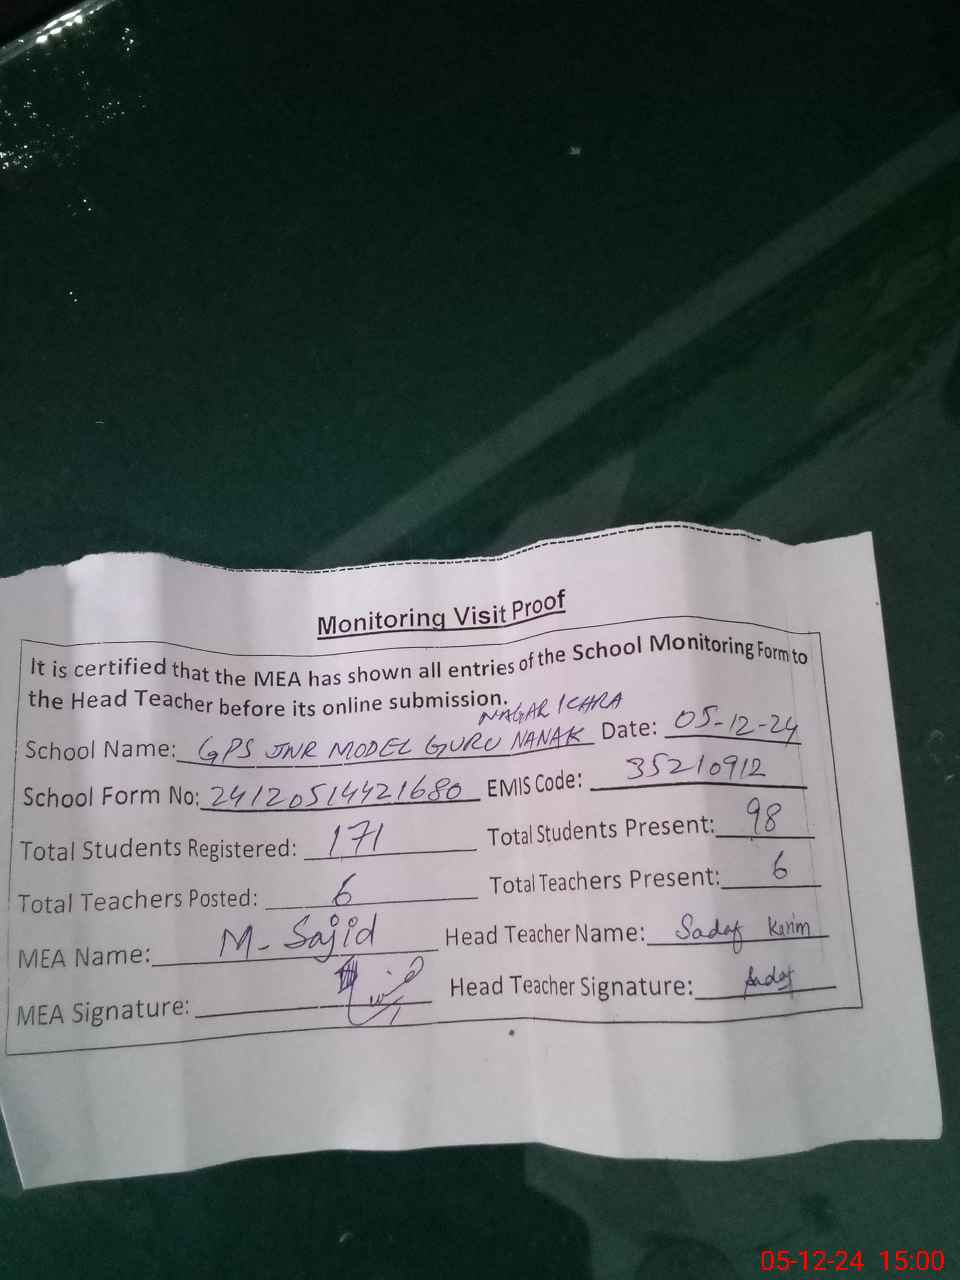 Monitoring Visit Proof
It is certified that the MEA has shown all entries of the School Monitoring Form to
the Head Teacher before its online submission.
NAGAR ICHRA
School Name: GPS JNR MODEL GURU NANAK Date: 05-12-24
School Form No: 24120514421680 EMIS Code: 35210912
Total Students Registered: 171 Total Students Present: 98
Total Teachers Posted: 6 Total Teachers Present: 6
MEA Name: M- Sajid Head Teacher Name: Sadaf Karim
MEA Signature: Head Teacher Signature: Sadaf
05-12-24 15:00